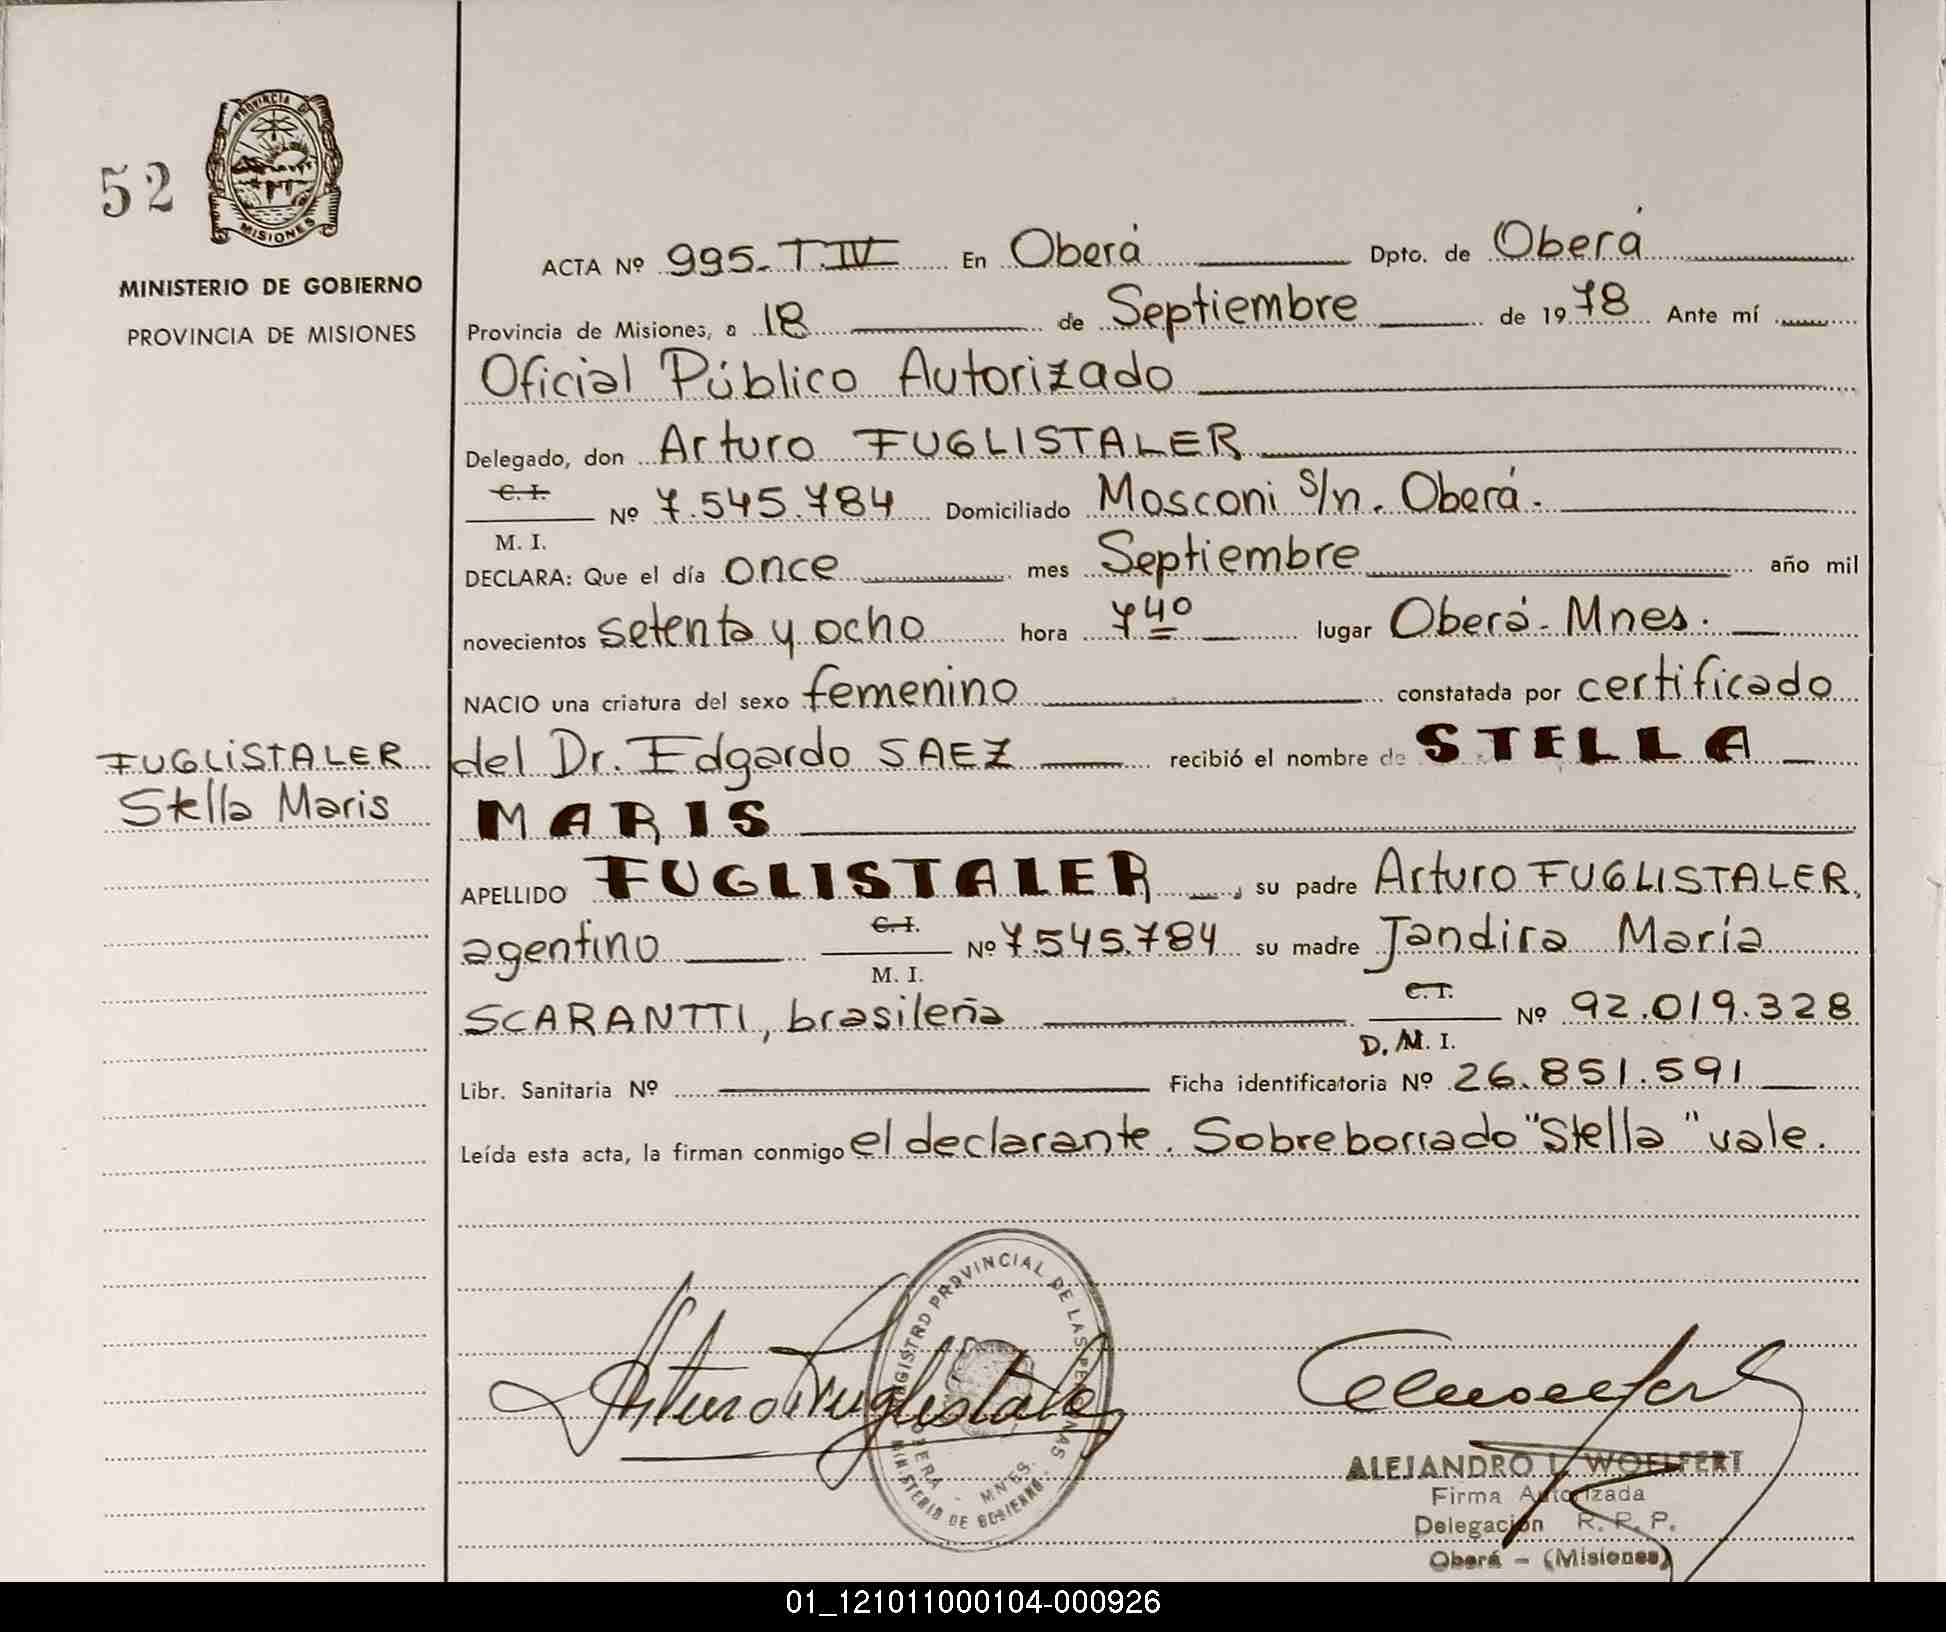 52
PROVINCIA DE
MISIONES
MINISTERIO DE GOBIERNO
PROVINCIA DE MISIONES
FUGLISTALER
Stella Maris
ACTA Nº 995-T.IV En Oberá Dpto. de Oberá
Provincia de Misiones, a 18 de Septiembre de 1978 Ante mí
Oficial Público Autorizado
Delegado, don Arturo FUGLISTALER
C. I.
Nº 7.545.784 Domiciliado Mosconi s/n. Oberá.
M. I.
DECLARA: Que el día once mes Septiembre año mil
novecientos setenta y ocho hora 7 40 lugar Oberá-Mnes.
NACIO una criatura del sexo femenino constatada por certificado
del Dr. Edgardo SAEZ recibió el nombre de STELLA
MARIS
APELLIDO FUGLISTALER, su padre Arturo FUGLISTALER,
agentino C.I. Nº 7.545.784 su madre Jandira María
M. I.
SCARANTTI, brasileña C.I. Nº 92.019.328
D.M.I.
Libr. Sanitaria Nº Ficha identificatoria Nº 26.851.591
Leída esta acta, la firman conmigo el declarante. Sobreborrado "Stella" vale.
Arturo Fuglistaler
REGISTRO PROVINCIAL DE LAS PERSONAS
OBERA - MNES.
MINISTERIO DE GOBIERNO
ALEJANDRO L. WOELFERT
Firma Autorizada
Delegación R. R. P.
Oberá - (Misiones)
01_121011000104-000926